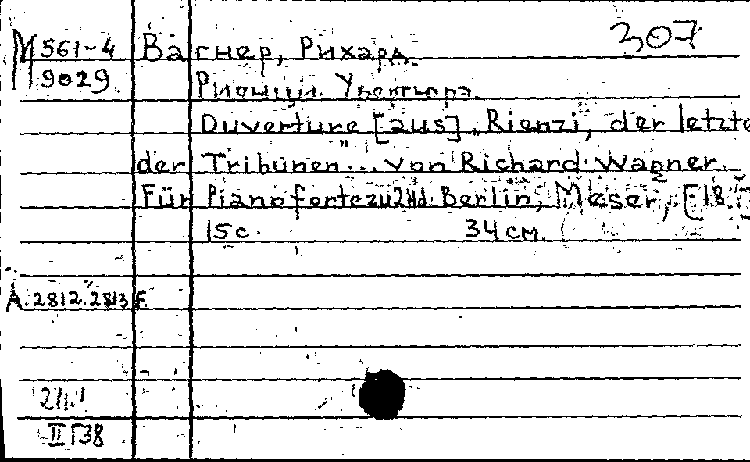 307
М 561-4 Вагнер, Рихард.
9029 Риенци. Увертюра.
Ouverture [aus] „Rienzi, der letzte
der Tribunen"... von Richard Wagner.
Für Pianoforte zu 2 Hd. Berlin, Meser, [18
15 с. 34 см.
A. 2812. 2813 F.
II 38